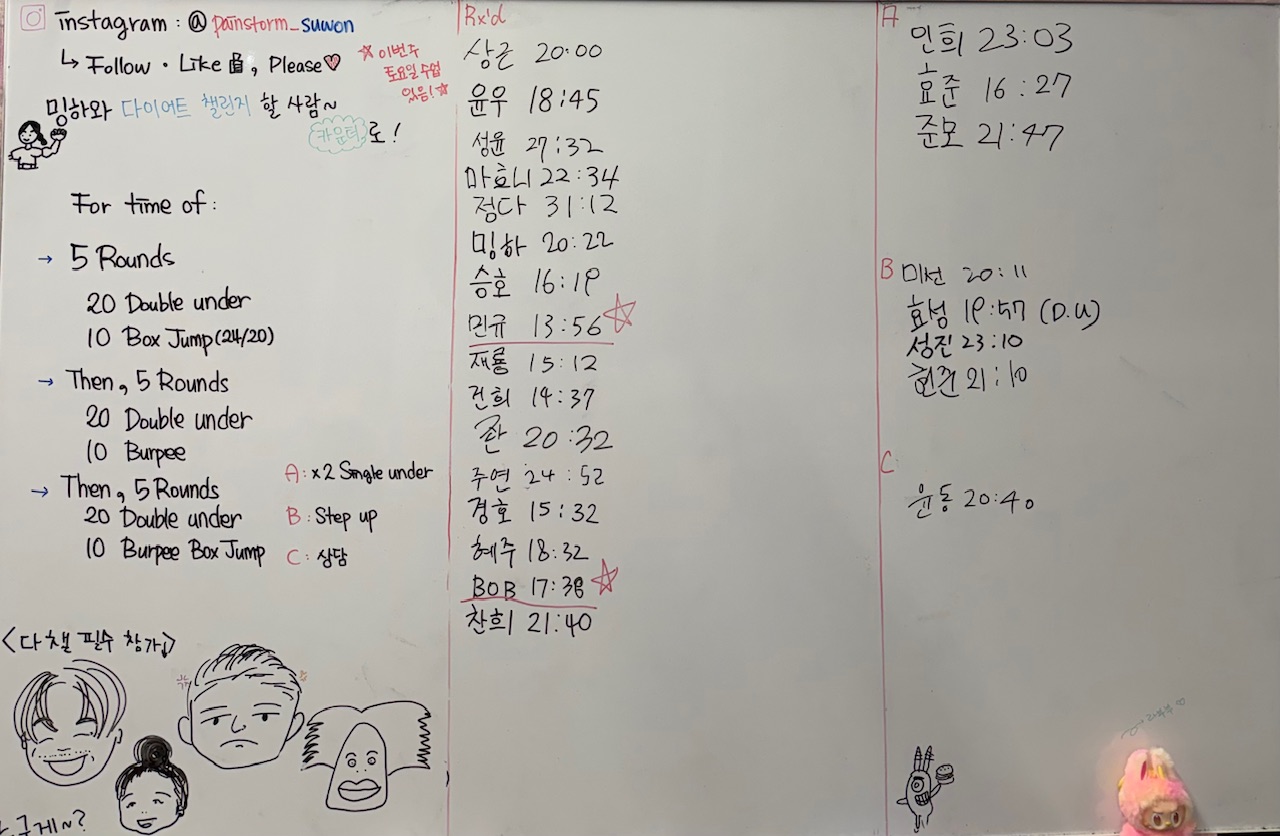 instagram : @ painstorm_suwon
↳ Follow · Like, Please♡
☆ 이번주
토요일 수업
있음! ☆
밍하와 다이어트 챌린지 할 사람~
카운터로!
For time of :
→ 5 Rounds
20 Double under
10 Box Jump (24/20)
→ Then, 5 Rounds
20 Double under
10 Burpee
→ Then, 5 Rounds
20 Double under
10 Burpee Box Jump
A : x2 Single under
B : Step up
C : 상담
<다챌 필수 참가>
Rx'd
상근 20:00
윤우 18:45
성윤 27:32
마효니 22:34
정다 31:12
밍하 20:22
승호 16:19
민규 13:56 ☆
재룡 15:12
건희 14:37
20:32
주연 24:52
경호 15:32
혜주 18:32
BOB 17:38 ☆
찬희 21:40
A
인희 23:03
효준 16:27
준모 21:47
B
미선 20:11
효성 19:57 (D.U)
성진 23:10
현준 21:10
C
윤동 20:40